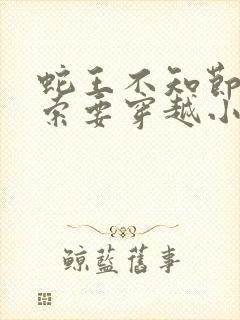 蛇王不知節
索要穿越小
鯨藍舊事